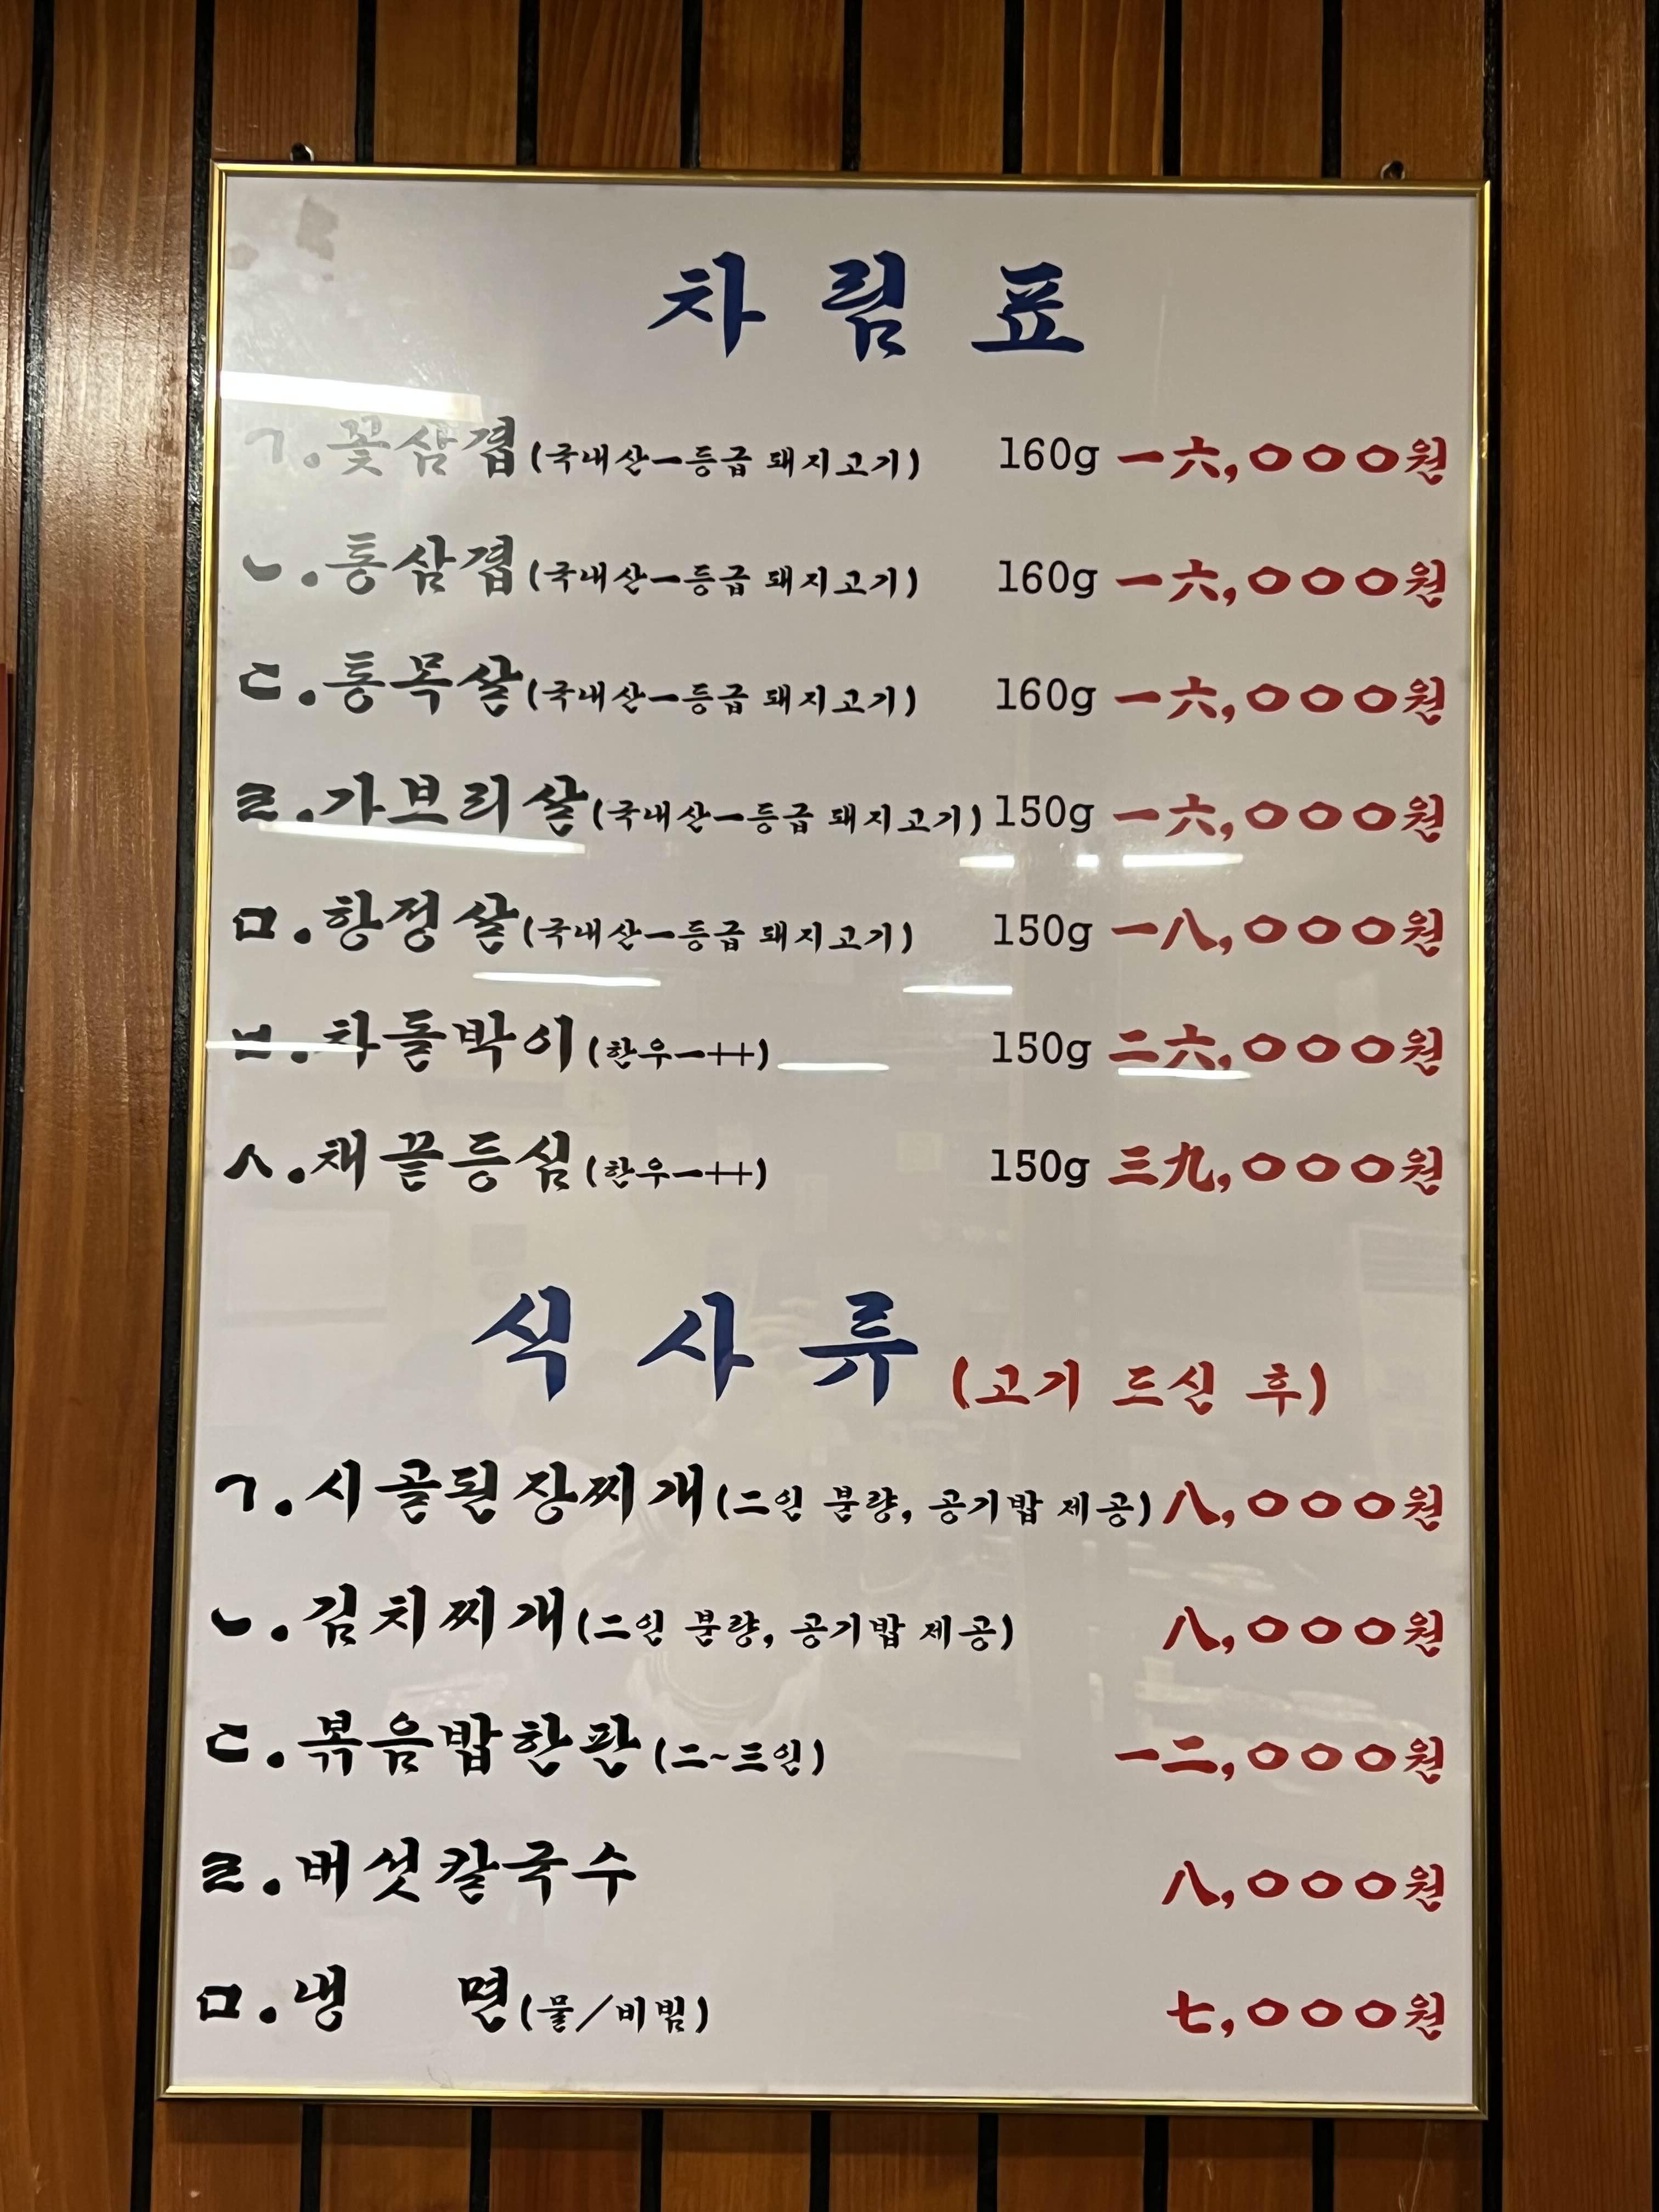 차림표
ㄱ.꽃삼겹(국내산一등급 돼지고기) 160g 一六,○○○원
ㄴ.통삼겹(국내산一등급 돼지고기) 160g 一六,○○○원
ㄷ.통목살(국내산一등급 돼지고기) 160g 一六,○○○원
ㄹ.가브리살(국내산一등급 돼지고기) 150g 一六,○○○원
ㅁ.항정살(국내산一등급 돼지고기) 150g 一八,○○○원
ㅂ.차돌박이(한우一++) 150g 二六,○○○원
ㅅ.채끝등심(한우一++) 150g 三九,○○○원
식사류 (고기 드신 후)
ㄱ.시골된장찌개(二인 분량, 공기밥 제공) 八,○○○원
ㄴ.김치찌개(二인 분량, 공기밥 제공) 八,○○○원
ㄷ.볶음밥한판(二~三인) 一二,○○○원
ㄹ.버섯칼국수 八,○○○원
ㅁ.냉 면(물/비빔) 七,○○○원